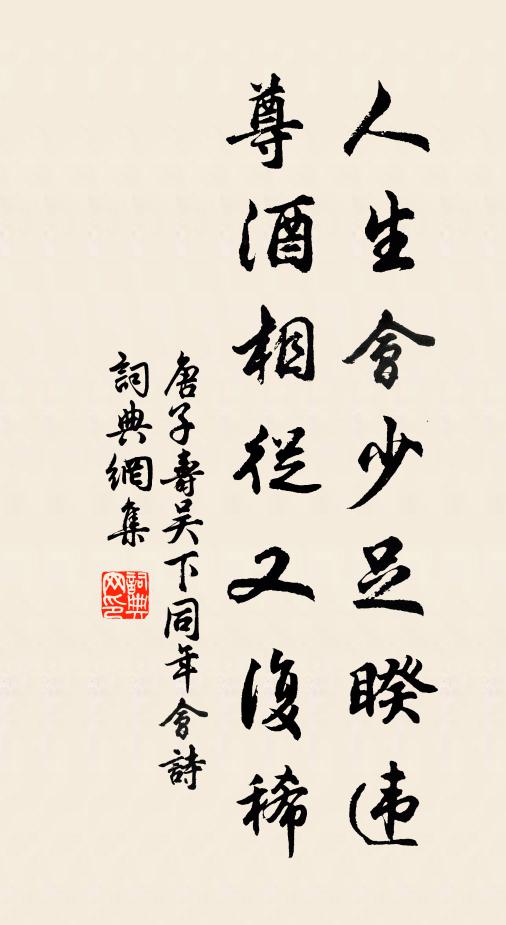 人生會少足睽违
尊酒相從又復稀
唐子壽吴下同年會詩
詞典網集
詞典网印